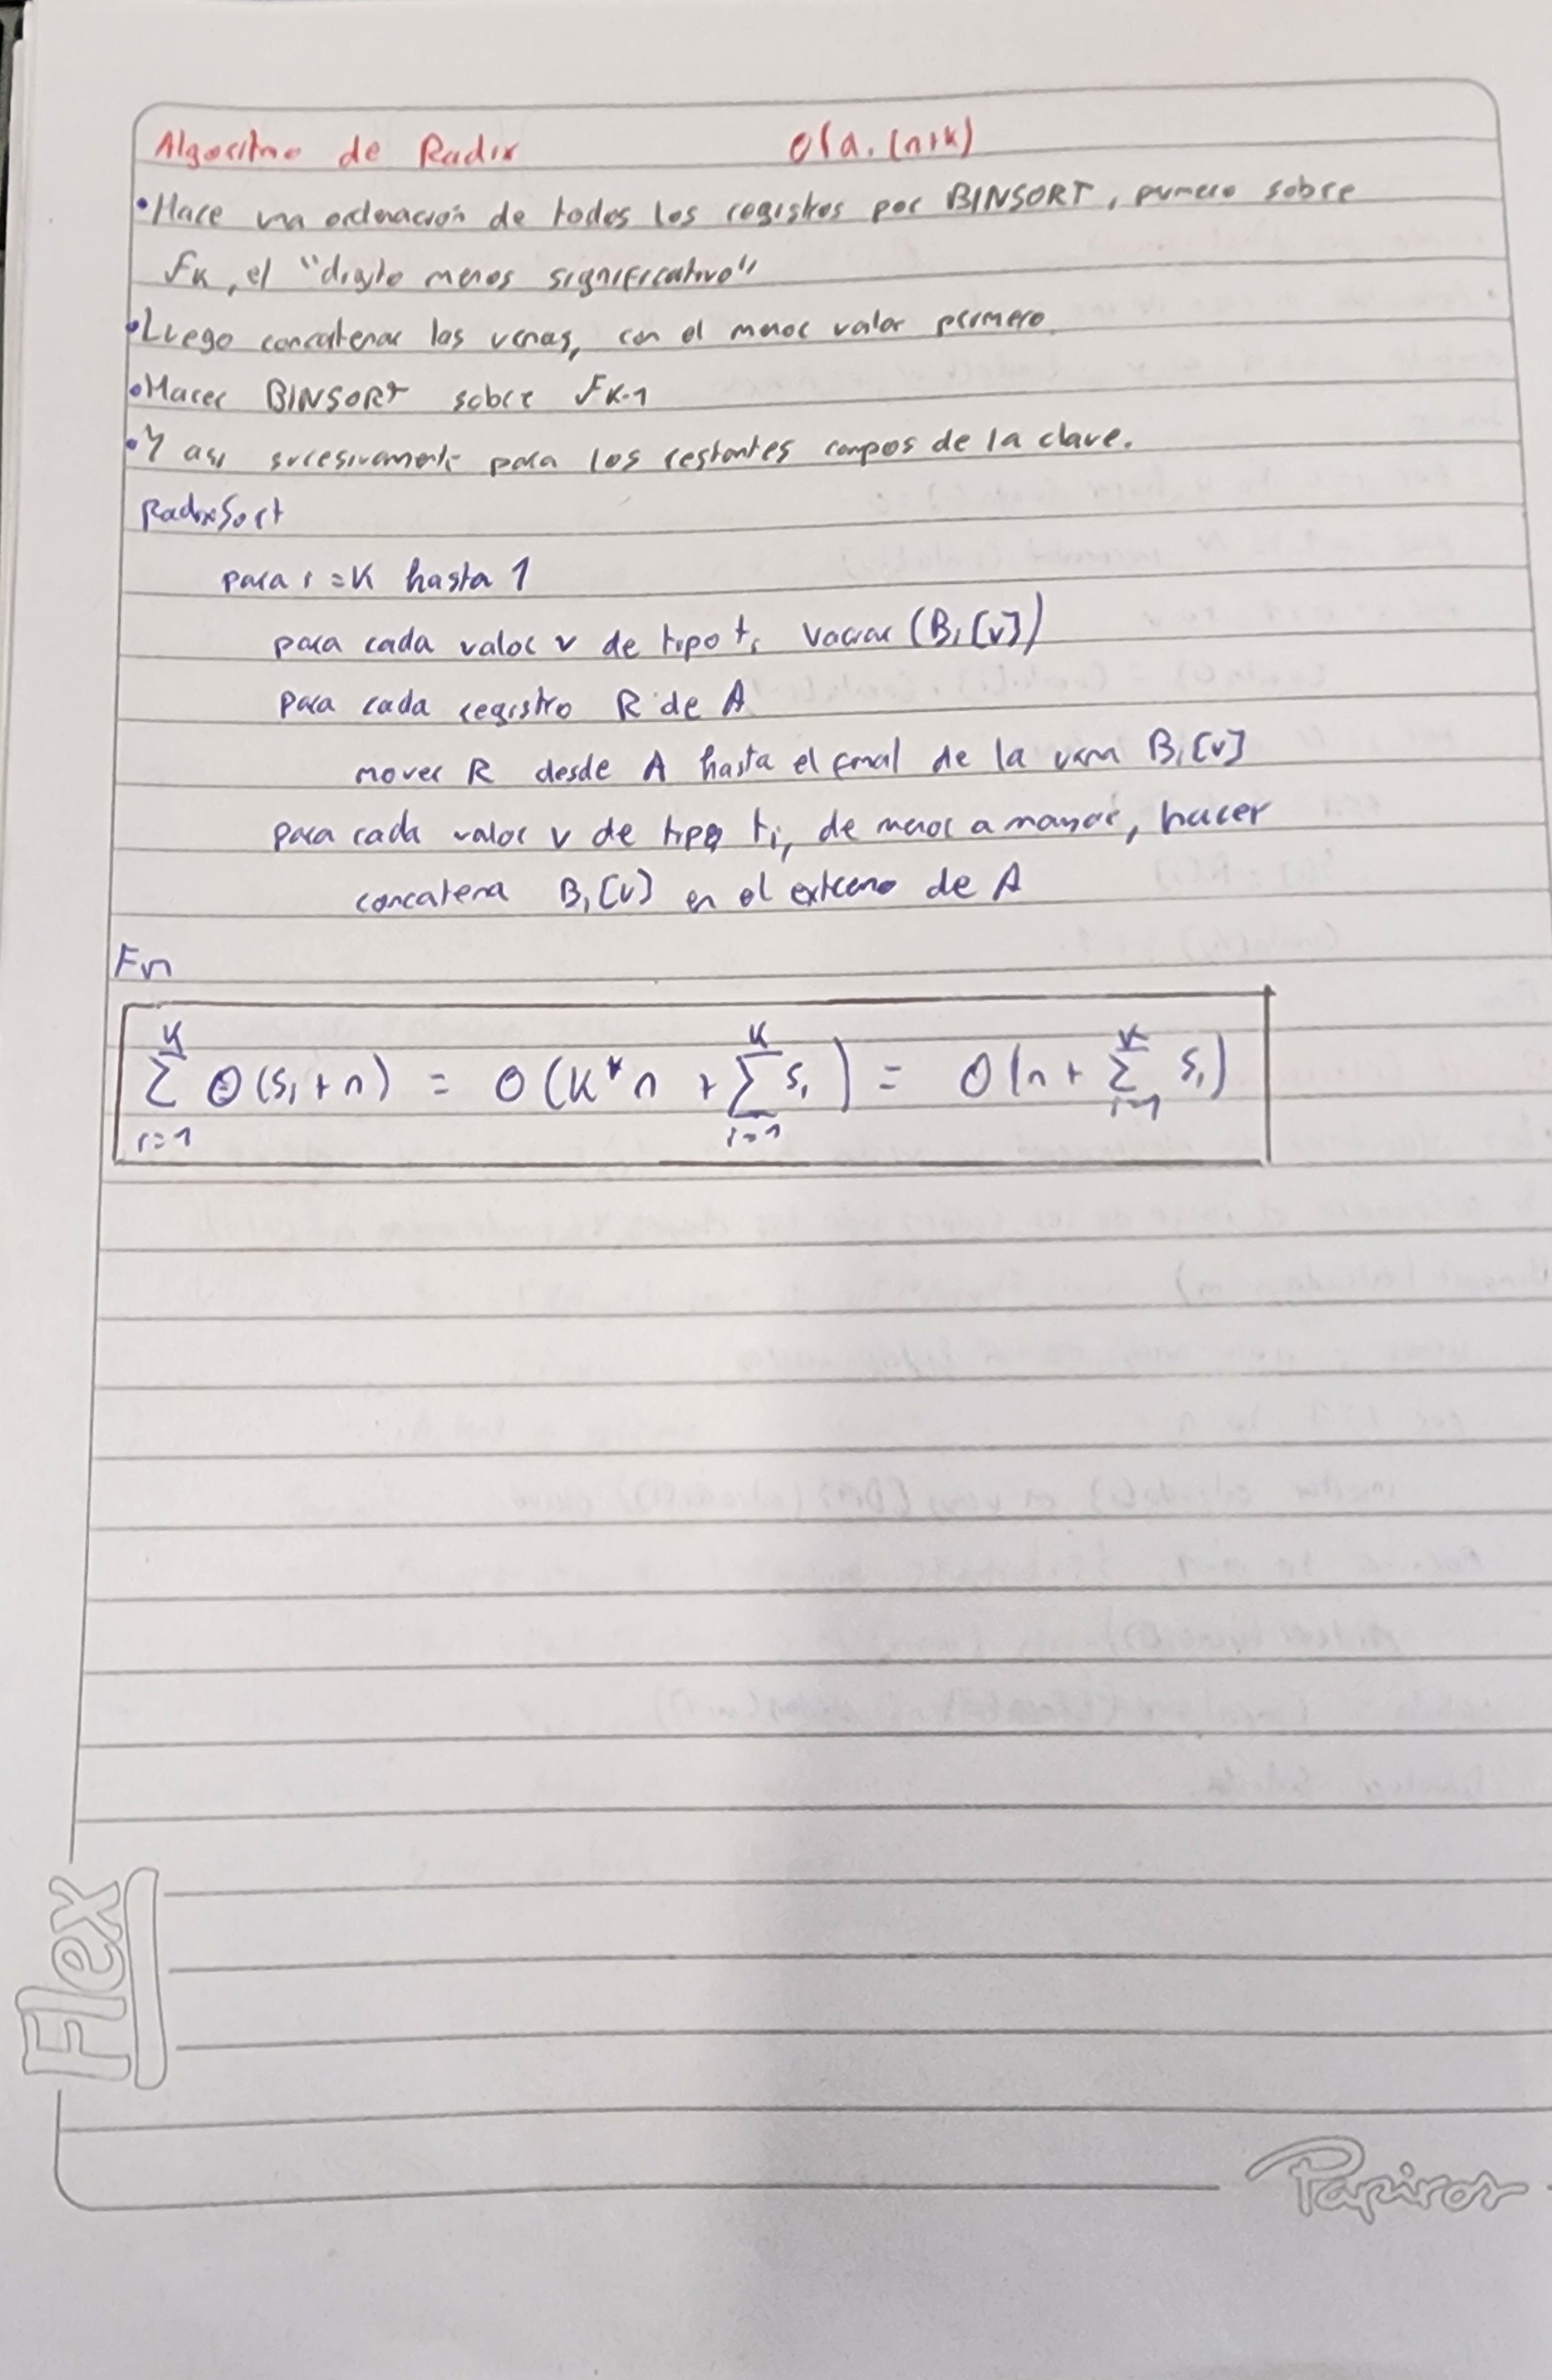 Algoritmo de Radix O(a.(n+k)
•Hace una ordenación de todos los registros por BINSORT, primero sobre
Fk, el "digito menos significativo"
•Luego concatenar las urnas, con el menor valor primero.
•Hacer BINSORT sobre Fk-1
•Y asi sucesivamente para los restantes campos de la clave.
RadixSort
para i = K hasta 1
para cada valor v de tipo ti vaciar (Bi[v])
para cada registro R de A
mover R desde A hasta el final de la urna Bi[v]
para cada valor v de tipo ti, de menor a mayor, hacer
concatena Bi[v] en el extremo de A
Fin
∑ᵢ₌₁ᴷ O(si + n) = O(K*n + ∑ᵢ₌₁ᴷ si) = O(n + ∑ᵢ₌₁ᴷ si)
Flex
Papiros